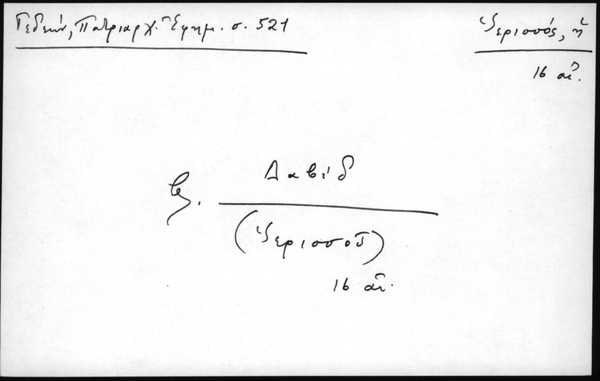 Γεδεών, Πατριαρχ. Ἐφημ. σ. 521
Ἱερισσός, ἡ
16 αἰ.
βλ. Δαβίδ
(Ἱερισσοῦ)
16 αἰ.